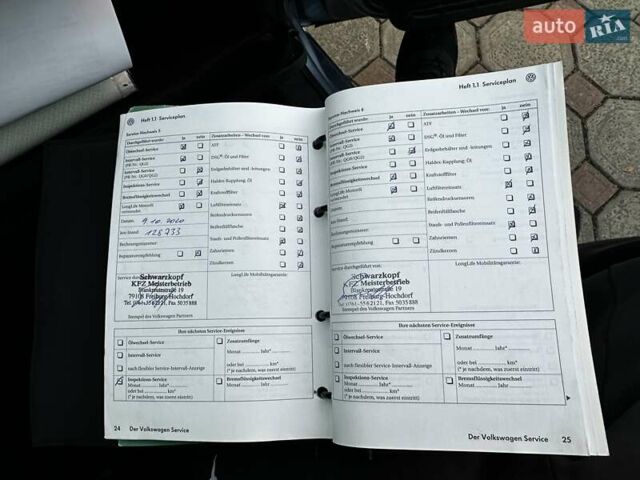 auto RIA
.com
Heft 1.1 Serviceplan
Service-Nachweis 5
Durchgeführt wurde: ja nein
Ölwechsel-Service
Intervall-Service
(PR-Nr.: QG1)
Inspektions-Service
Bremsflüssigkeitswechsel
LongLife-Mobilö
verwendet
Datum: 9.10.2020
km-Stand: 128733
Rechnungsnummer:
Reparaturempfehlung
Zusatzarbeiten - Wechsel von: ja nein
ATF
DSG®-Öl und Filter
Erdgasbehälter und -leitungen
Haldex-Kupplung, Öl
Kraftstofffilter
Luftfiltereinsatz
Reifendrucksensoren
Reifenfüllflasche
Staub- und Pollenfiltereinsatz
Zahnriemen
Zündkerzen
Service durchgeführt von:
LongLife Mobilitätsgarantie:
Schwarzkopf
KFZ Meisterbetrieb
Blankreutestraße 19
79108 Freiburg-Hochdorf
Stempel des Volkswagen Partners
Ihre nächsten Service-Ereignisse
Ölwechsel-Service
Intervall-Service
nach flexibler Service-Intervall-Anzeige
Inspektions-Service
Monat Jahr*
oder bei km*
(* je nachdem, was zuerst eintritt)
Zusatzumfänge
Monat Jahr*
oder bei km*
(* je nachdem, was zuerst eintritt)
Bremsflüssigkeitswechsel
Monat Jahr*
24 Der Volkswagen Service
Heft 1.1 Serviceplan
Service-Nachweis 6
Durchgeführt wurde: ja nein
Ölwechsel-Service
Intervall-Service
Inspektions-Service
Bremsflüssigkeitswechsel
verwendet
Datum:
km-Stand:
Rechnungsnummer:
Reparaturempfehlung
Zusatzarbeiten - Wechsel von: ja nein
ATF
DSG®-Öl und Filter
Erdgasbehälter und -leitungen
Haldex-Kupplung, Öl
Kraftstofffilter
Luftfiltereinsatz
Reifendrucksensoren
Reifenfüllflasche
Staub- und Pollenfiltereinsatz
Zahnriemen
Zündkerzen
Service durchgeführt von:
LongLife Mobilitätsgarantie:
Schwarzkopf
KFZ Meisterbetrieb
79108 Freiburg-Hochdorf
Stempel des Volkswagen Partners
Ihre nächsten Service-Ereignisse
Ölwechsel-Service
Intervall-Service
nach flexibler Service-Intervall-Anzeige
Inspektions-Service
Monat Jahr*
oder bei km*
(* je nachdem, was zuerst eintritt)
Zusatzumfänge
Monat Jahr*
oder bei km*
(* je nachdem, was zuerst eintritt)
Bremsflüssigkeitswechsel
Monat Jahr*
Der Volkswagen Service 25